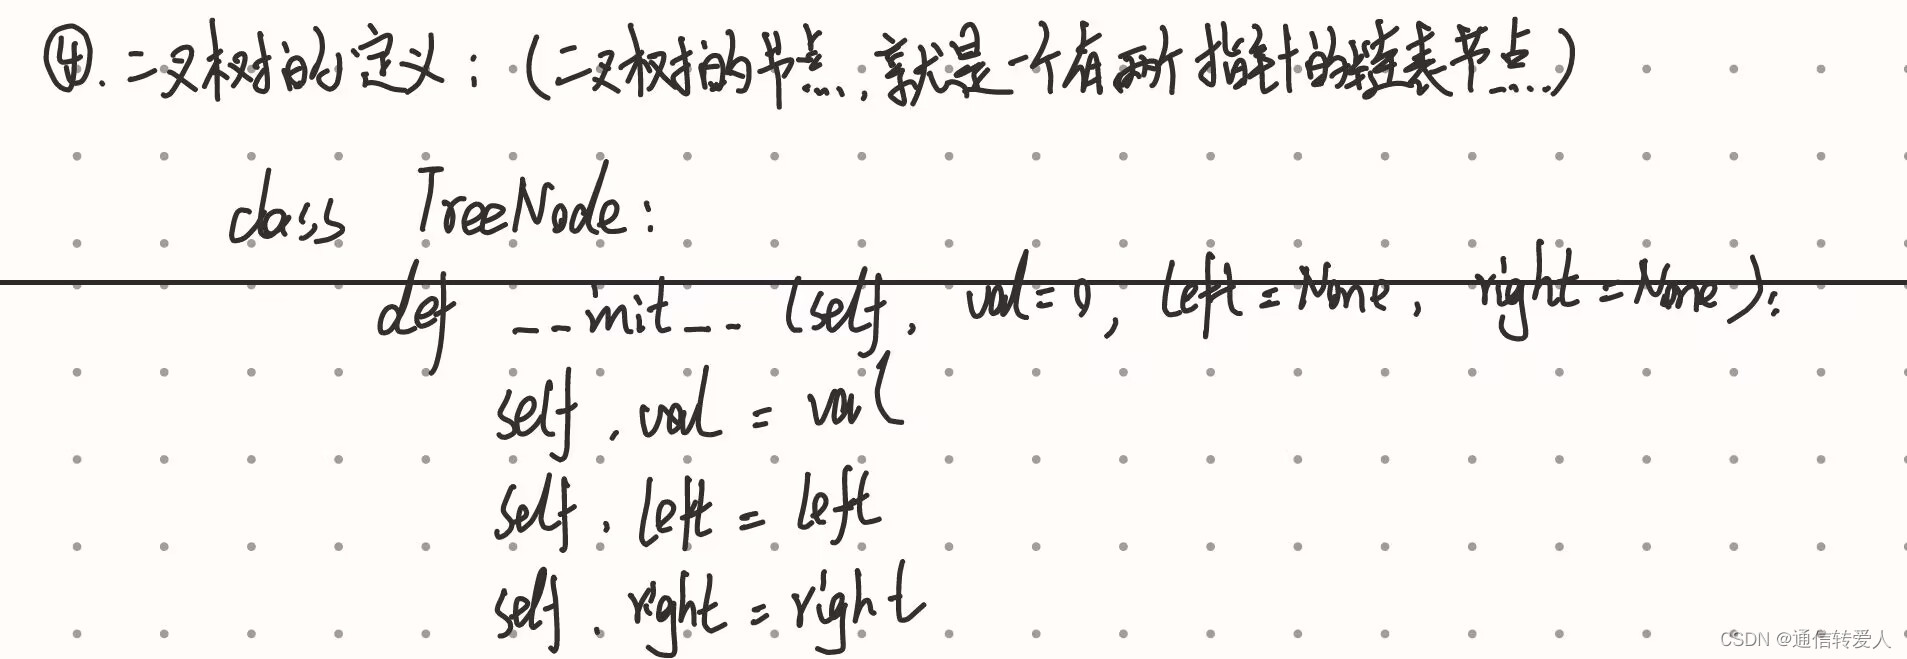 ④. 二叉树的定义：（二叉树的节点，就是一个有两个指针的链表节点）
class TreeNode:
def __init__ (self, val=0, left=None, right=None):
self.val = val
self.left = left
self.right = right
CSDN @通信转爱人